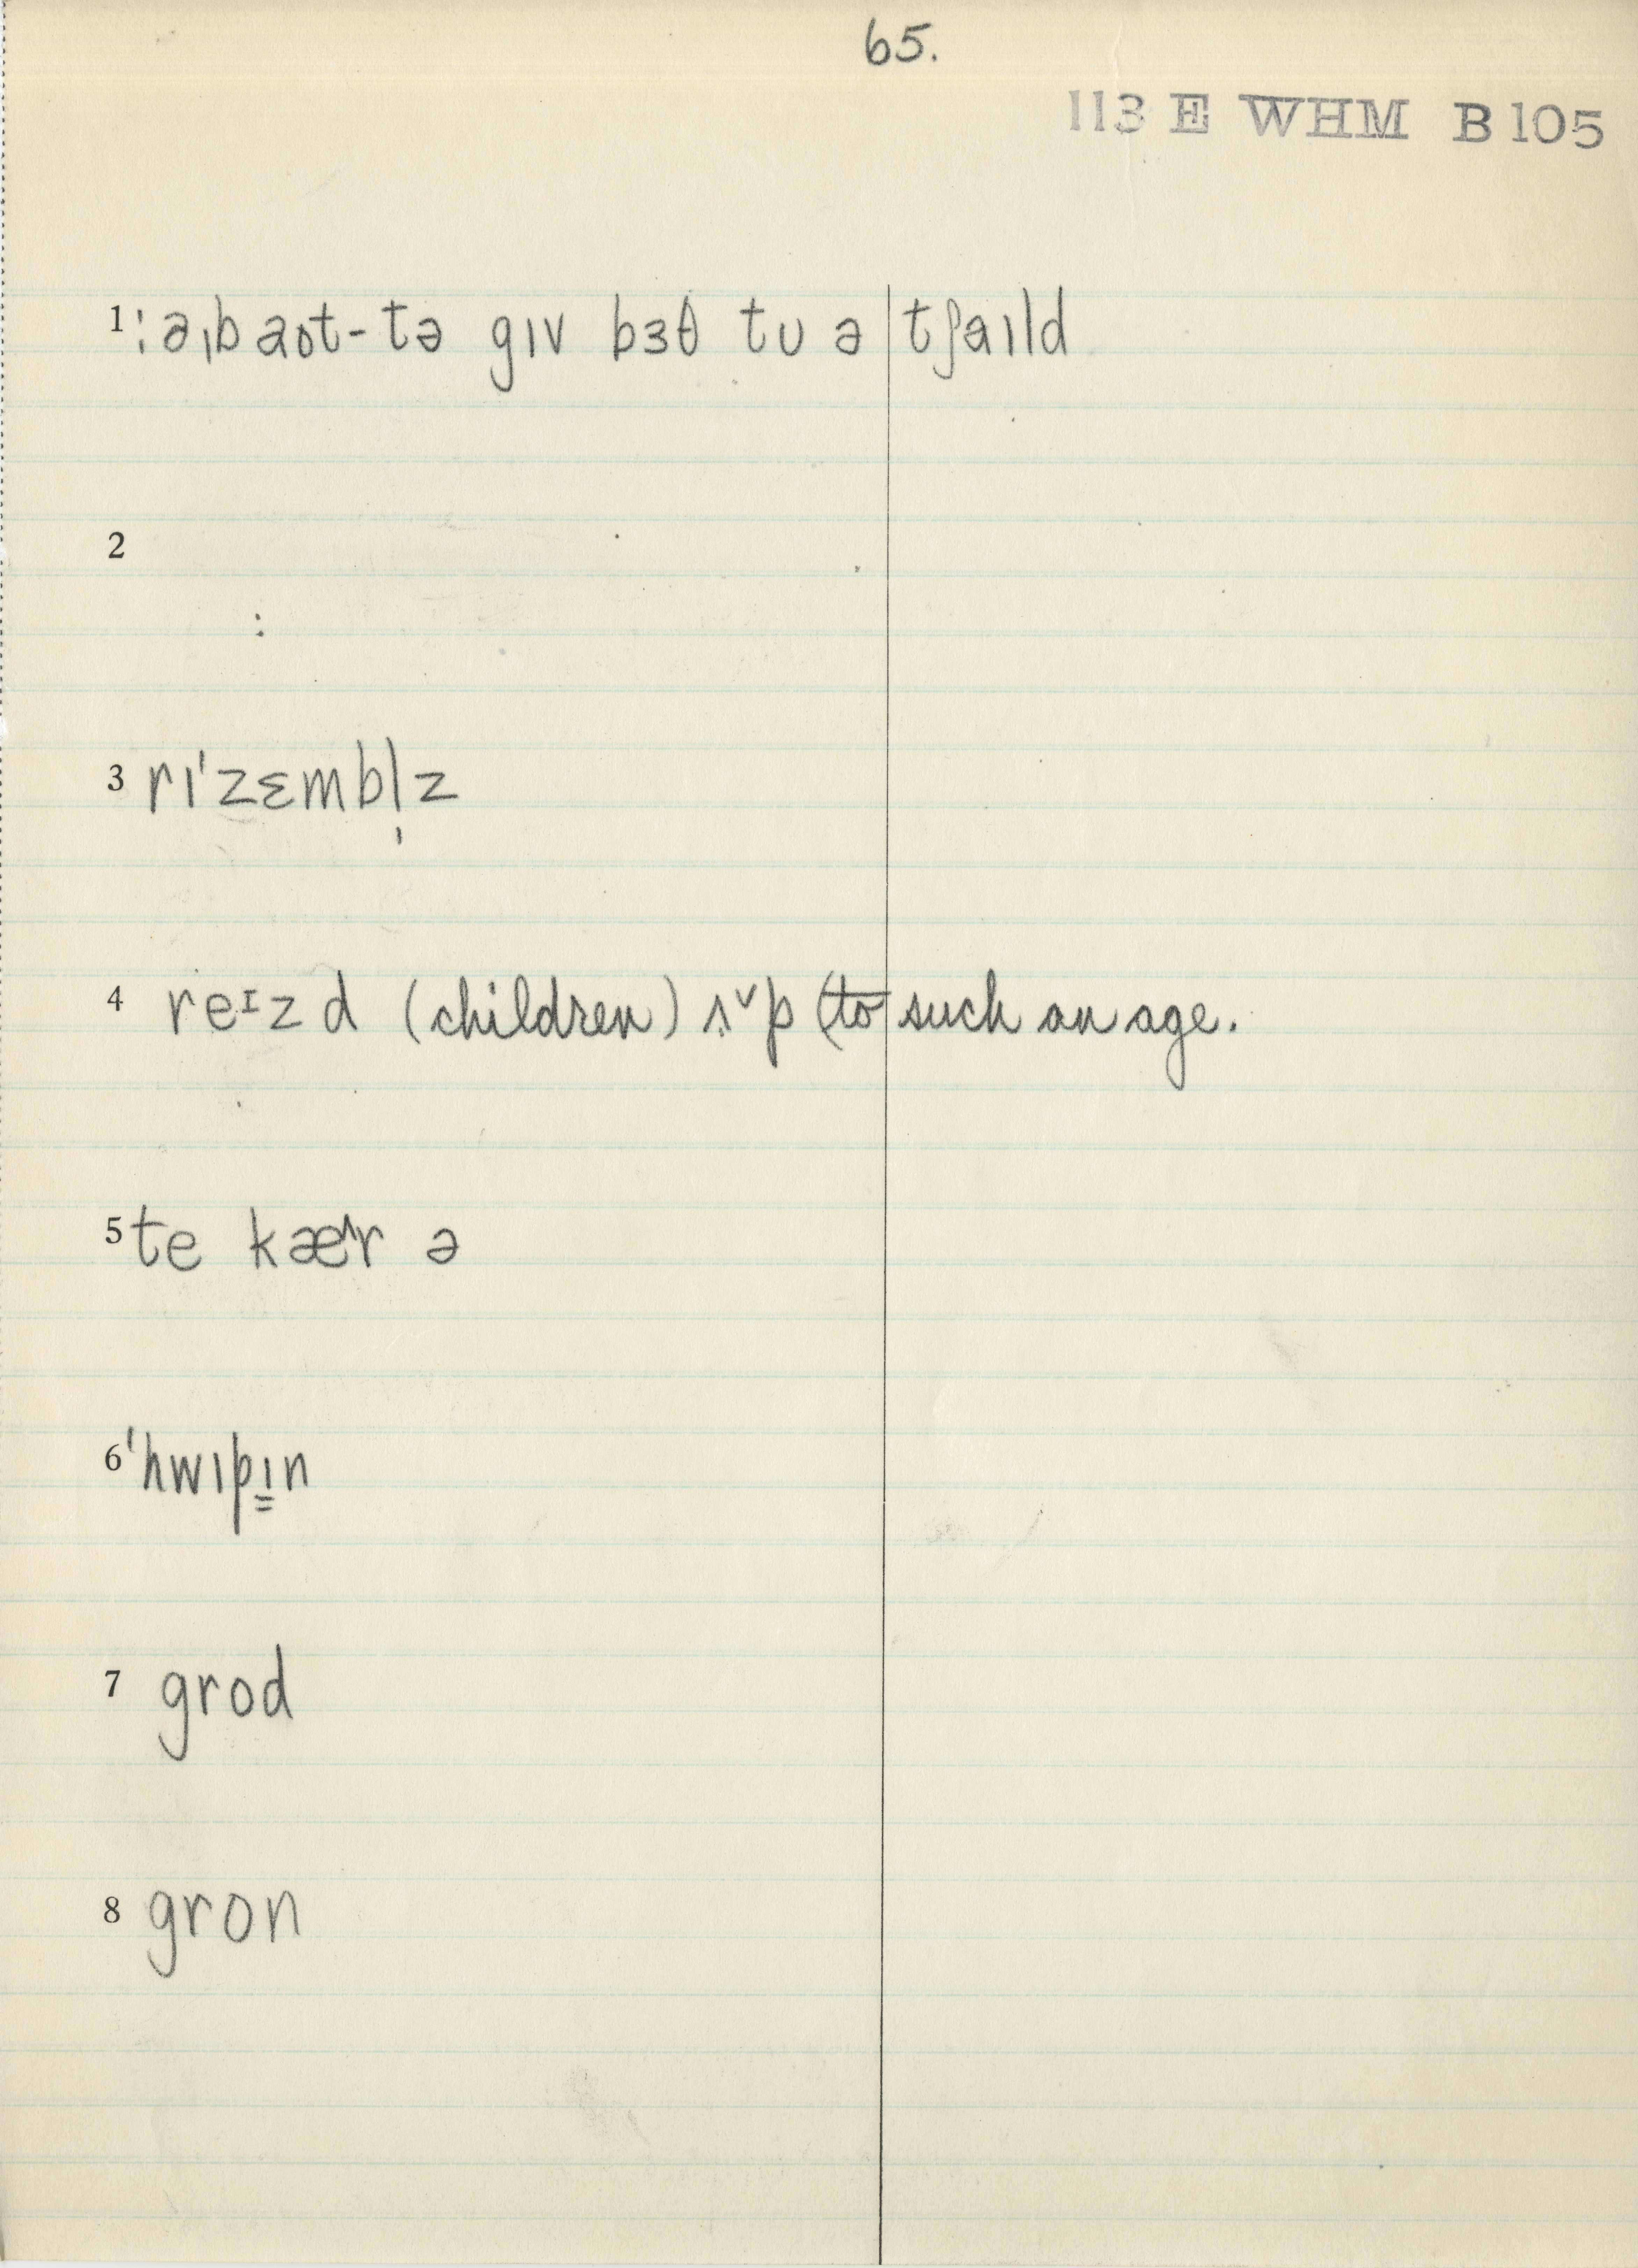 65.
113 E WHM B 105
1 : əˌbaʊt-tə gɪv bɜθ tʊ ə tʃaɪld
2
:
3 rɪˈzɛmbl̩z
4 reᶦzd (children) ʌ̣ˇp (to such an age.
5 te kæ^r ə
6 ˈhwɪpɪ̳n
7 grod
8 gron